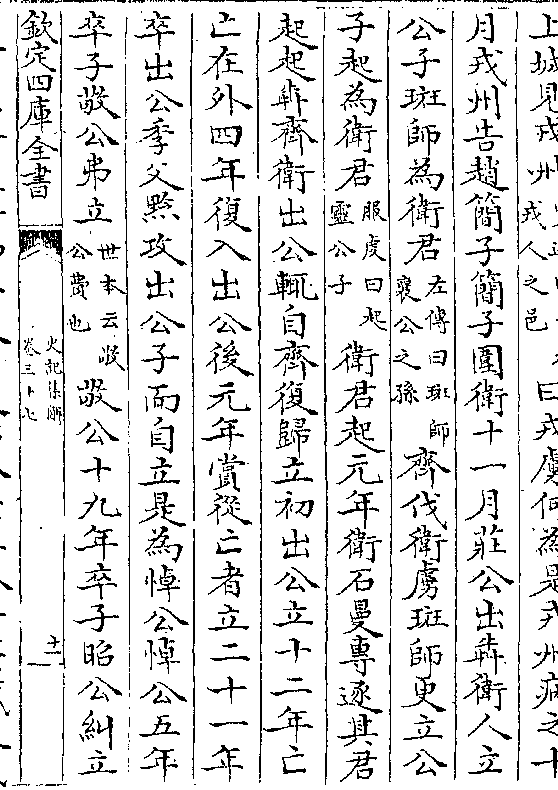 上城見戎州戎人之邑曰戎虜何為是戎州病之十
月戎州告趙簡子簡子圍衛十一月莊公出犇衛人立
公子斑師為衛君左傳曰斑師襄公之孫齊伐衛虜斑師更立公
子起為衛君服虔曰起靈公子衛君起元年衛石曼專逐其君
起起犇齊衛出公輒自齊復歸立初出公立十二年亡
亡在外四年復入出公後元年賞從亡者立二十一年
卒出公季父黔攻出公子而自立是為悼公悼公五年
卒子敬公弗立世本云敬公費也敬公十九年卒子昭公糾立
欽定四庫全書
史記集解
卷三十七
十一